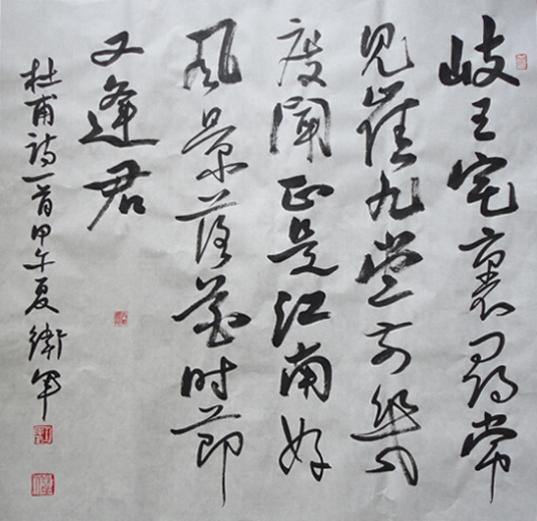 岐王宅裏尋常
見崔九堂前幾
度聞正是江南好
風景落花時節
又逢君
杜甫詩一首甲午夏衛軍